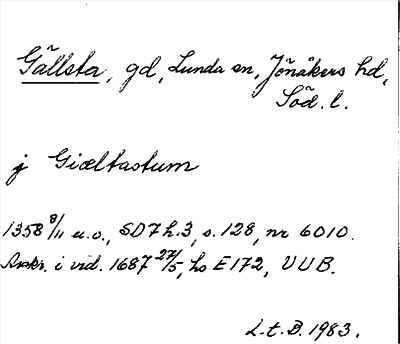 Gällsta, gd, Lunda sn, Jönåkers hd,
Söd. l.
j Giæltastum
1358 8/11 u.o., SD 7 h.3, s. 128, nr 6010.
Avskr. i vid. 1687 27/5, hs E 172, UUB.
L.t.B. 1983.